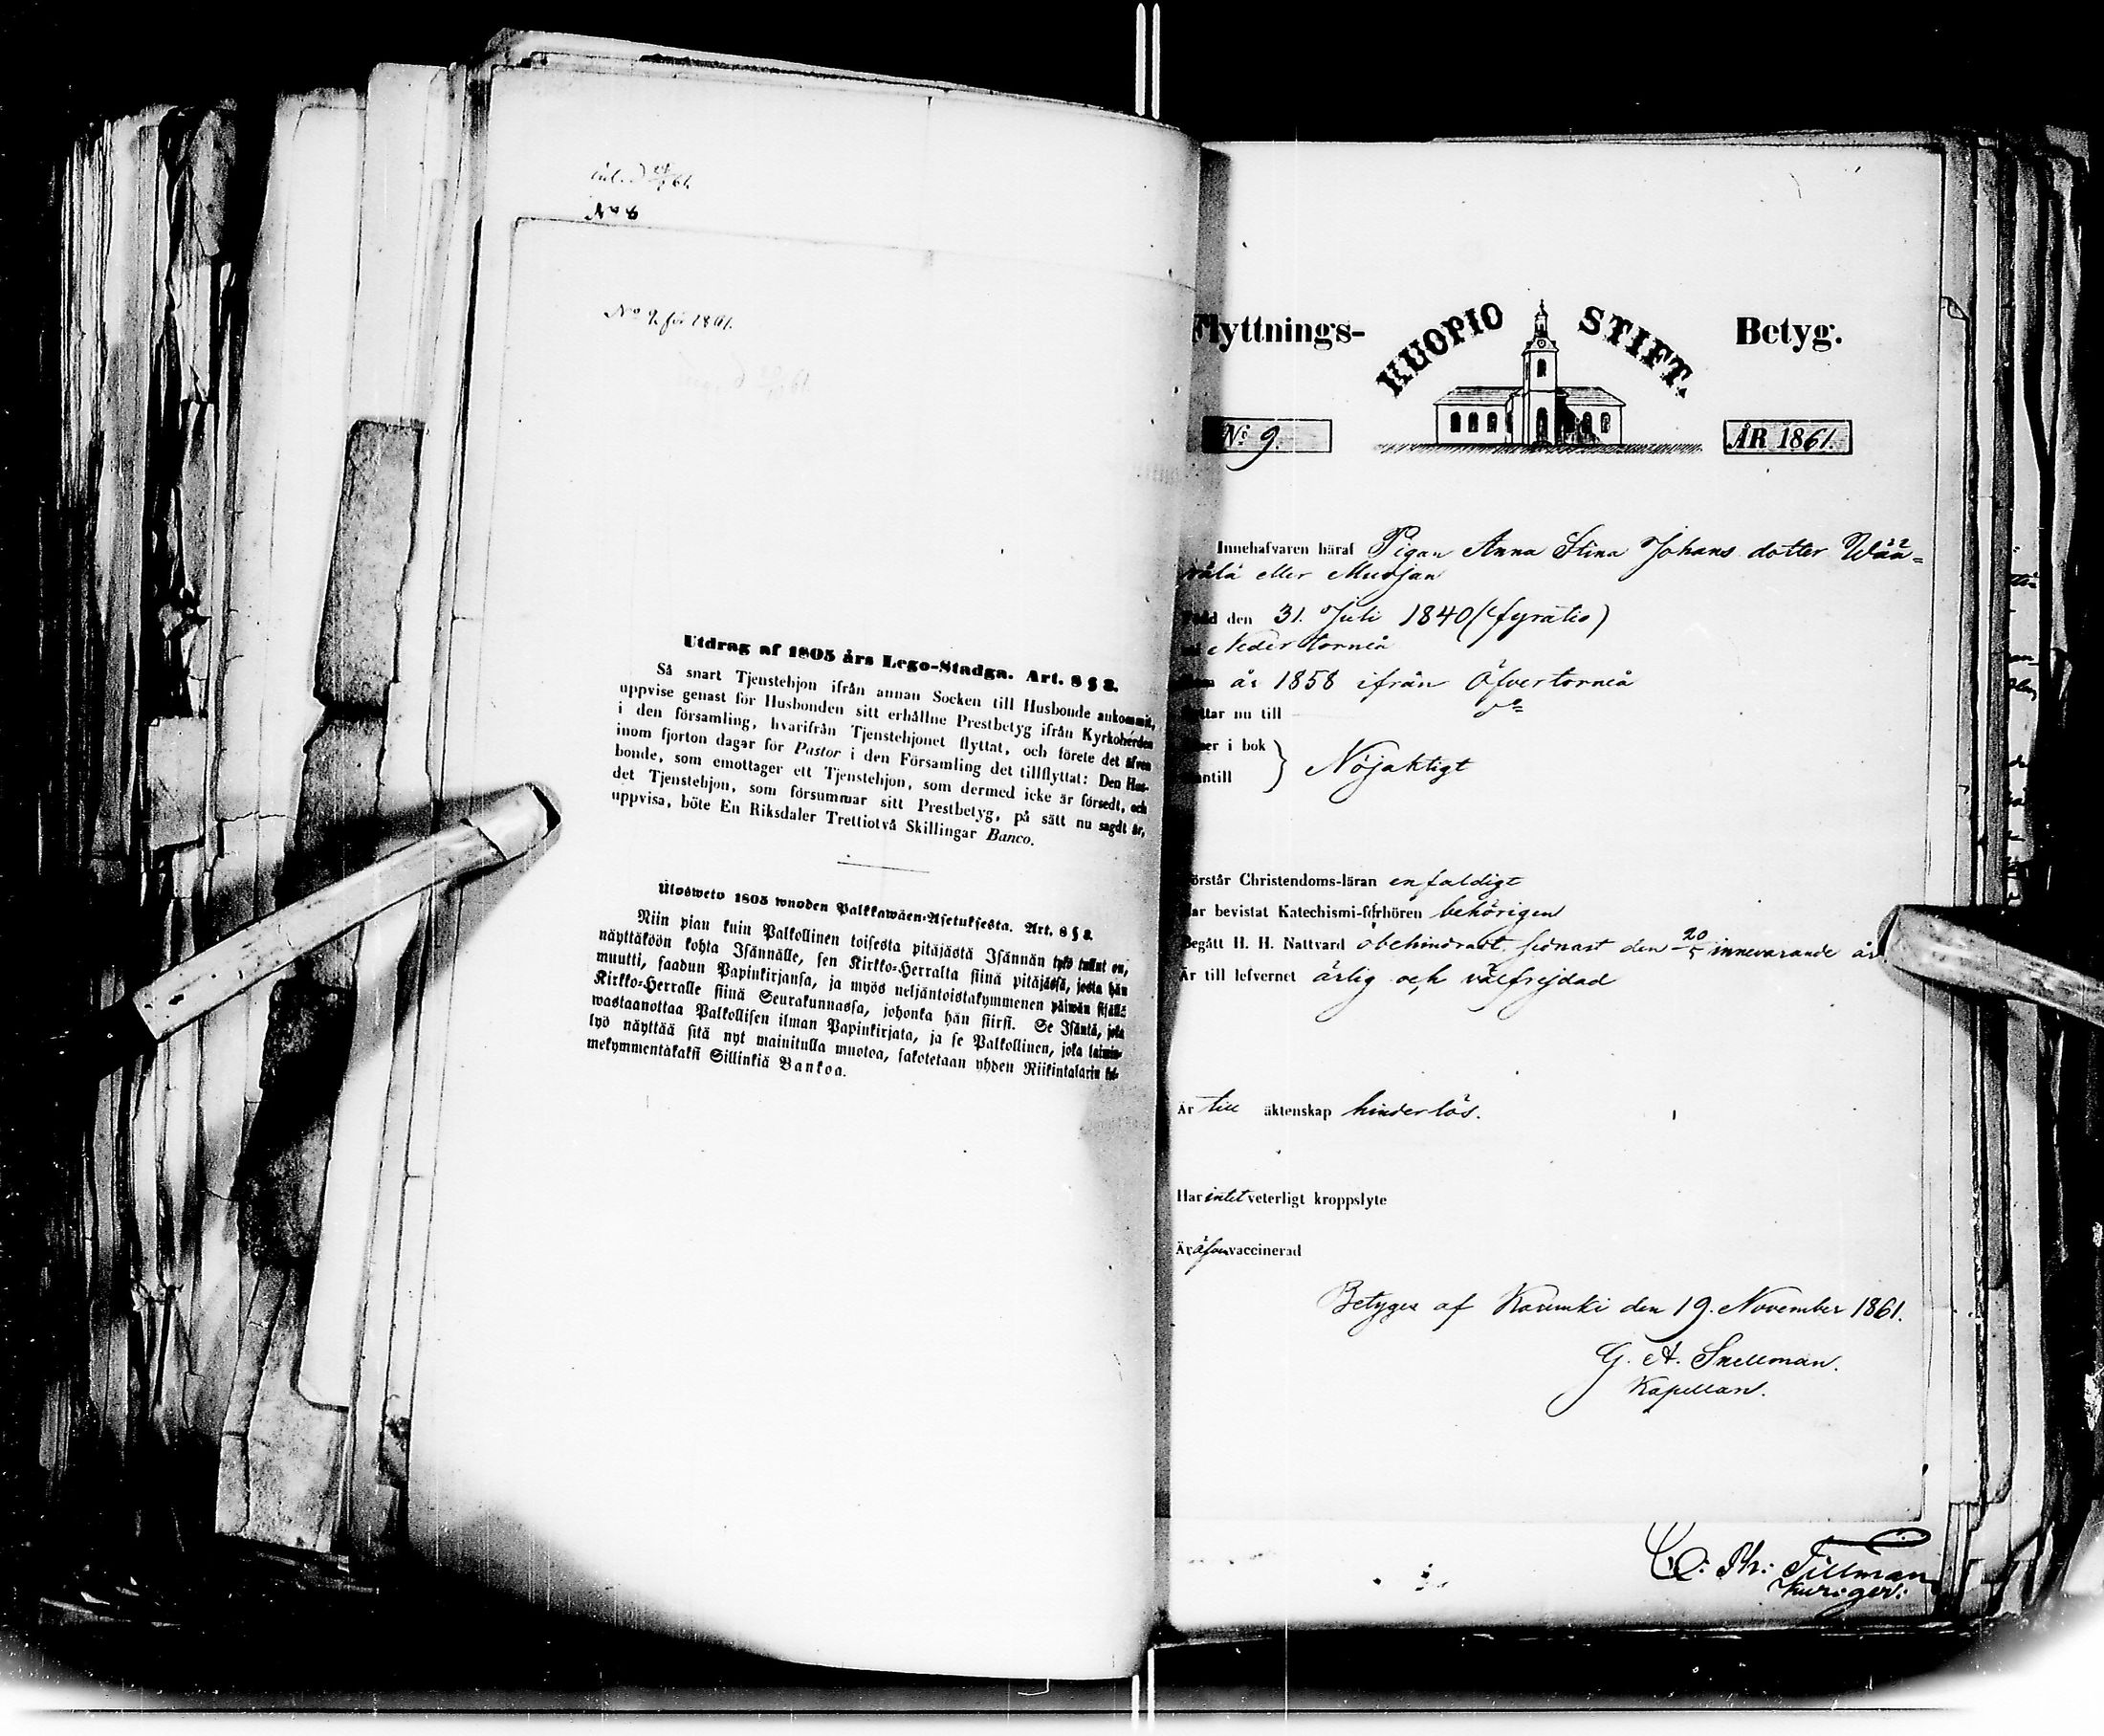 No 8
No 9 för 1861.
Utdrag af 1805 års Lego-Stadga. Art. 8 § 8.
Så snart Tjenstehjon ifrån annan Socken till Husbonde ankommit,
uppvise genast för Husbonden sitt erhållne Prestbetyg ifrån Kyrkoherden
i den församling, hvarifrån Tjenstehjonet flyttat, och förete det äfven
inom fjorton dagar för Pastor i den Församling det tillflyttat: Den Hus-
bonde, som emottager ett Tjenstehjon, som dermed icke är försedt, och
det Tjenstehjon, som försummar sitt Prestbetyg, på sätt nu sagdt är,
uppvisa, böte En Riksdaler Trettiotvå Skillingar Banco.
Ulosweto 1805 wuoden Palkkawäen-Asetuksesta. Art. 8 § 8.
Niin pian kuin Palkollinen toisesta pitäjästä Isännän tykö tullut on,
näyttäköön kohta Isännälle, sen Kirkko-Herralta siinä pitäjässä, josta hän
muutti, saadun Papinkirjansa, ja myös neljäntoistakymmenen päiwän sisällä
Kirkko-Herralle siinä Seurakunnassa, johonka hän siirsi. Se Isäntä, joka
wastaanottaa Palkollisen ilman Papinkirjata, ja se Palkollinen, joka laimin-
lyö näyttää sitä nyt mainitulla muotoa, sakotetaan yhden Riikintalarin kol-
mekymmentäkaksi Sillinkiä Bankoa.
Flyttnings- KUOPIO STIFT. Betyg.
No 9. ÅR 1861.
Innehafvaren häraf Pigan Anna Stina Johans dotter Wää-
rälä eller Muojan
Född den 31. Juli 1840 (fyratio)
Neder Torneå
år 1858 ifrån Öfvertorneå
nu till
i bok
antill } Nöjaktigt
Förstår Christendoms-läran enfaldigt
Har bevistat Katechismi-förhören behörigen
Begått H. H. Nattvard obehindradt sednast den 20/5 innevarande år.
Är till lefvernet ärlig och välfrejdad
Är till äktenskap hinderlös.
Har intet veterligt kroppslyte
Är äfven vaccinerad
Betygas af Karunki den 19. November 1861.
G. A. Snellman.
Kapellan.
Tillman